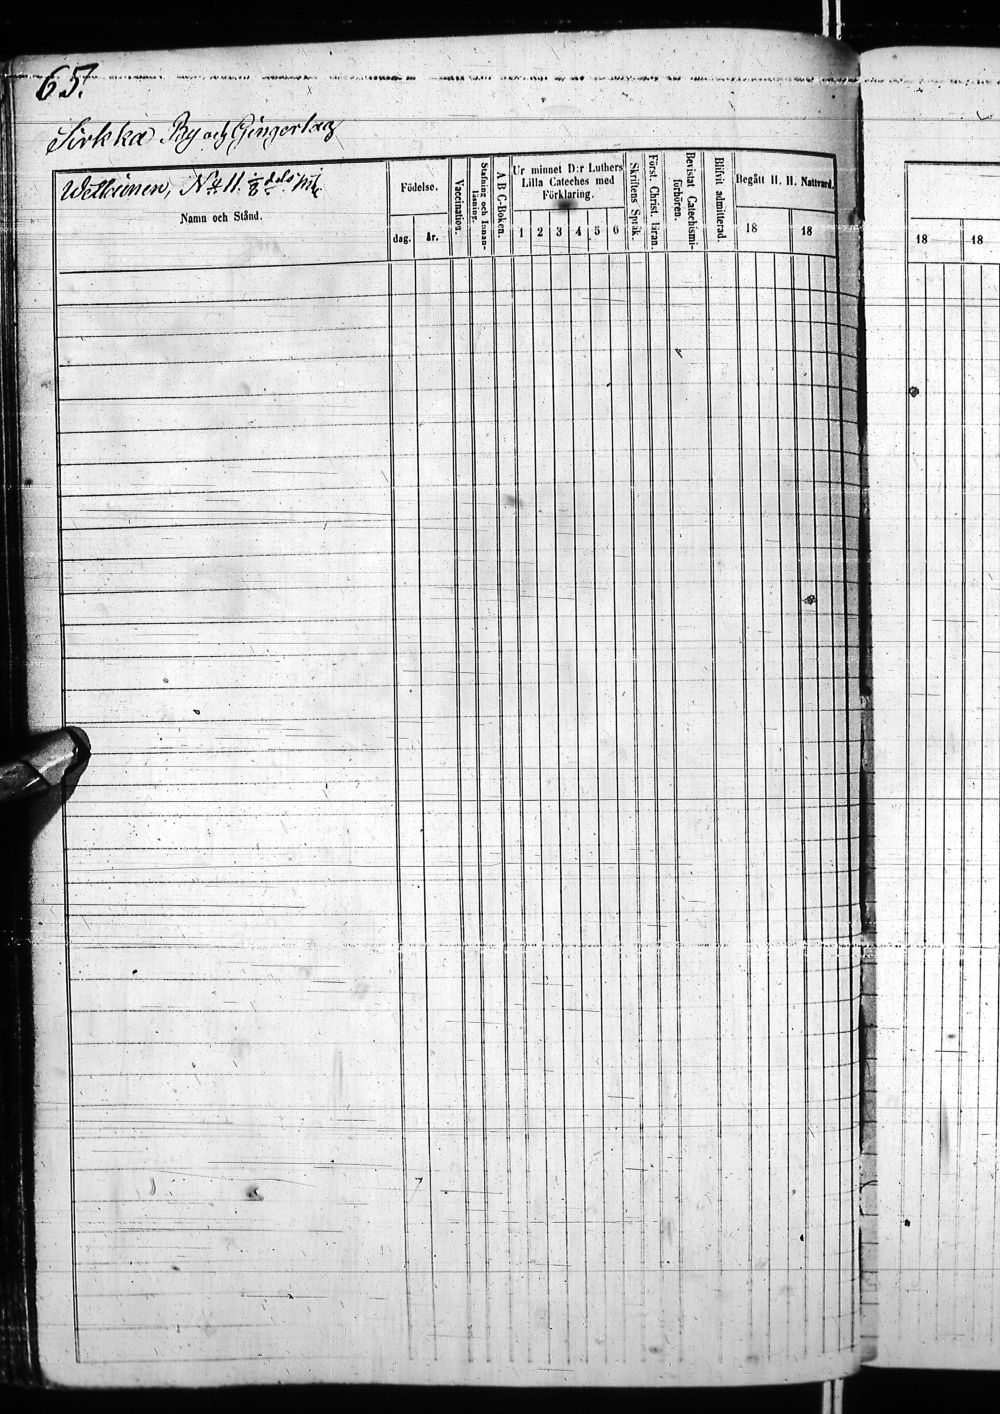 65.
Sirkka By och Gingerlag
Wetkinen, No 11. 1/8 dels mtl
Namn och Stånd.
Födelse.
dag. år.
Vaccination.
Stafning och Innan-läsning.
A B C-Boken.
Ur minnet D:r Luthers
Lilla Cateches med
Förklaring.
1 2 3 4 5 6
Skriftens Språk.
Först. Christ. läran.
Bevistat Catechismi-
förhören.
Blifvit admitterad.
Begått H. H. Nattvard.
18 18
18 18